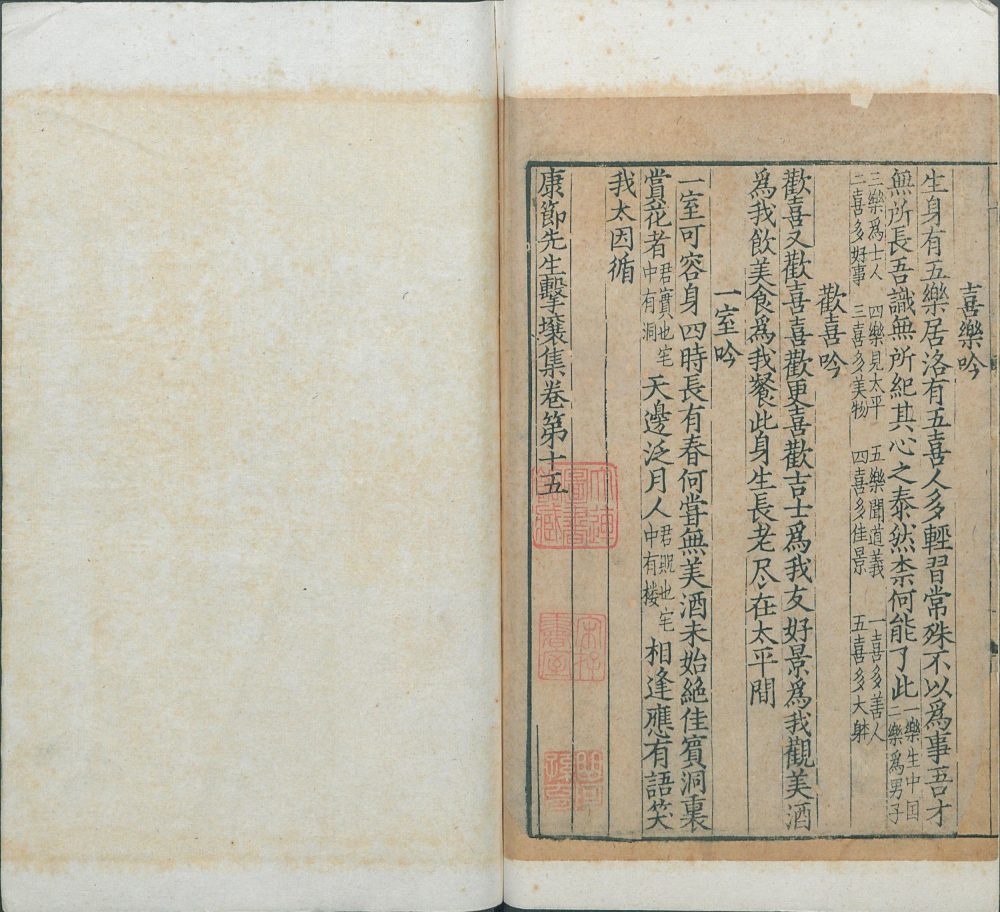 喜樂吟
生身有五樂居洛有五喜人多輕習常殊不以爲事吾才
無所長吾識無所紀其心之泰然柰何能了此一樂生中国二樂爲男子
三樂爲士人　四樂見太平　五樂聞道義　一喜多善人
二喜多好事　三喜多美物　四喜多佳景　五喜多大躰
歡喜吟
歡喜又歡喜喜歡更喜歡吉士爲我友好景爲我觀美酒
爲我飲美食爲我餐此身生長老尽在太平間
一室吟
一室可容身四時長有春何甞無美酒未始絶佳賓洞裏
賞花者君實也宅中有洞天邊泛月人君貺也宅中有楼相逢應有語笑
我太因循
康節先生擊壤集卷第十五
宋存書室